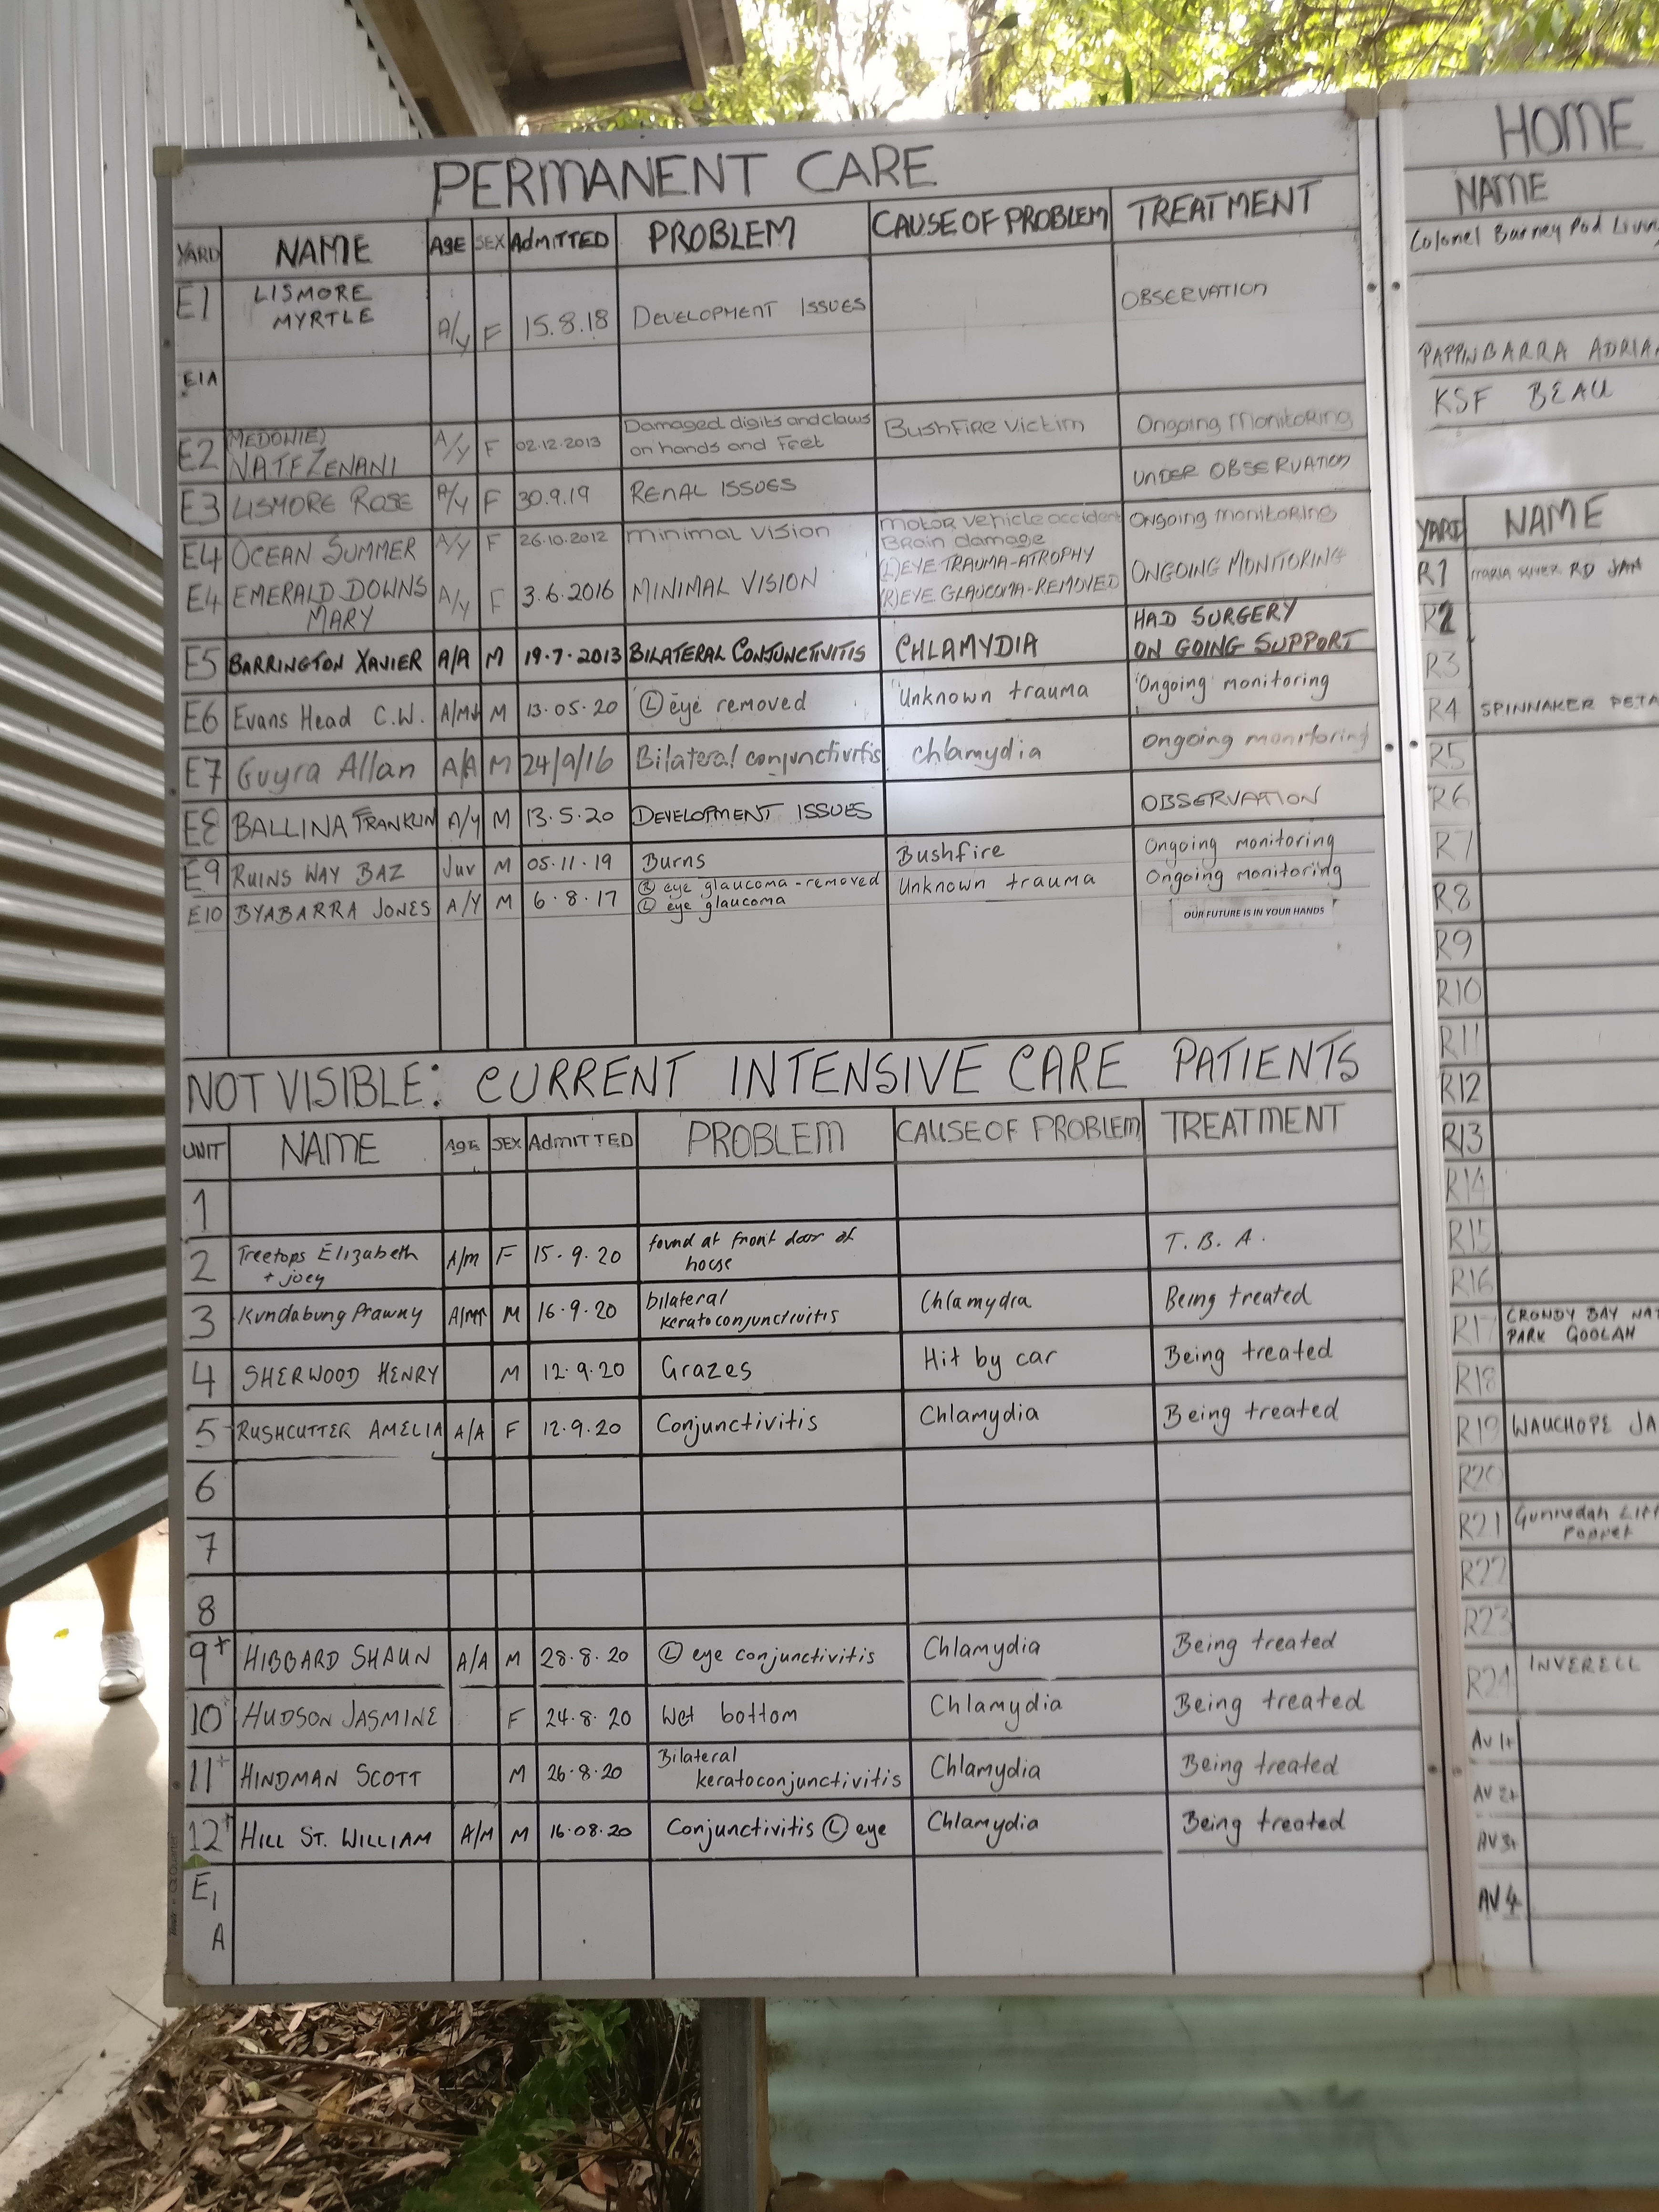 PERMANENT CARE
YARD NAME AGE SEX AdMITTED PROBLEM CAUSE OF PROBLEM TREATMENT
E1 LISMORE MYRTLE A/y F 15.8.18 DEVELOPMENT ISSUES OBSERVATION
E1A
E2 (MEDOWIE) NATFZENANI A/y F 02.12.2013 Damaged digits and claws on hands and Feet BushFire victim Ongoing Monitoring
E3 LISMORE ROSE A/y F 30.9.19 RENAL ISSUES UNDER OBSERVATION
E4 OCEAN SUMMER A/y F 26.10.2012 minimal vision motor vehicle accident Brain damage Ongoing monitoring
E4 EMERALD DOWNS MARY A/y F 3.6.2016 MINIMAL VISION (L)EYE TRAUMA-ATROPHY (R)EYE GLAUCOMA-REMOVED ONGOING MONITORING
E5 BARRINGTON XAVIER A/A M 19.7.2013 BILATERAL CONJUNCTIVITIS CHLAMYDIA HAD SURGERY ON GOING SUPPORT
E6 Evans Head C.W. M 13.05.20 Ⓛ eye removed Unknown trauma Ongoing monitoring
E7 Guyra Allan A/A M 24/9/16 Bilateral conjunctivitis chlamydia Ongoing monitoring
E8 BALLINA FRANKLIN A/y M 13.5.20 DEVELOPMENT ISSUES OBSERVATION
E9 RUINS WAY BAZ Juv M 05.11.19 Burns Bushfire Ongoing monitoring
E10 BYABARRA JONES A/Y M 6.8.17 Ⓡ eye glaucoma-removed Ⓛ eye glaucoma Unknown trauma Ongoing monitoring
OUR FUTURE IS IN YOUR HANDS
NOT VISIBLE: CURRENT INTENSIVE CARE PATIENTS
UNIT NAME AGE SEX AdMITTED PROBLEM CAUSE OF PROBLEM TREATMENT
1
2 Treetops Elizabeth + joey A/m F 15.9.20 found at front door of house T.B.A.
3 Kundabung Prawny M 16.9.20 bilateral keratoconjunctivitis Chlamydia Being treated
4 SHERWOOD HENRY M 12.9.20 Grazes Hit by car Being treated
5 RUSHCUTTER AMELIA A/A F 12.9.20 Conjunctivitis Chlamydia Being treated
6
7
8
9+ HIBBARD SHAUN A/A M 28.8.20 Ⓛ eye conjunctivitis Chlamydia Being treated
10+ HUDSON JASMINE F 24.8.20 Wet bottom Chlamydia Being treated
11+ HINDMAN SCOTT M 26.8.20 Bilateral keratoconjunctivitis Chlamydia Being treated
12+ HILL ST. WILLIAM A/M M 16.08.20 Conjunctivitis Ⓛ eye Chlamydia Being treated
E1
A
HOME
NAME
Colonel Barney Pod
PAPPINBARRA
KSF BEAU
YARD NAME
R1 MARIA RIVER RD JAM
R2
R3
R4 SPINNAKER
R5
R6
R7
R8
R9
R10
R11
R12
R13
R14
R15
R16
R17 CRONDY BAY
PARK GOOLAH
R18
R19 WAUCHOPE
R20
R21 Gunnedah
Poppet
R22
R23
R24 INVERELL
AV 1+
AV 2+
AV 3+
AV 4